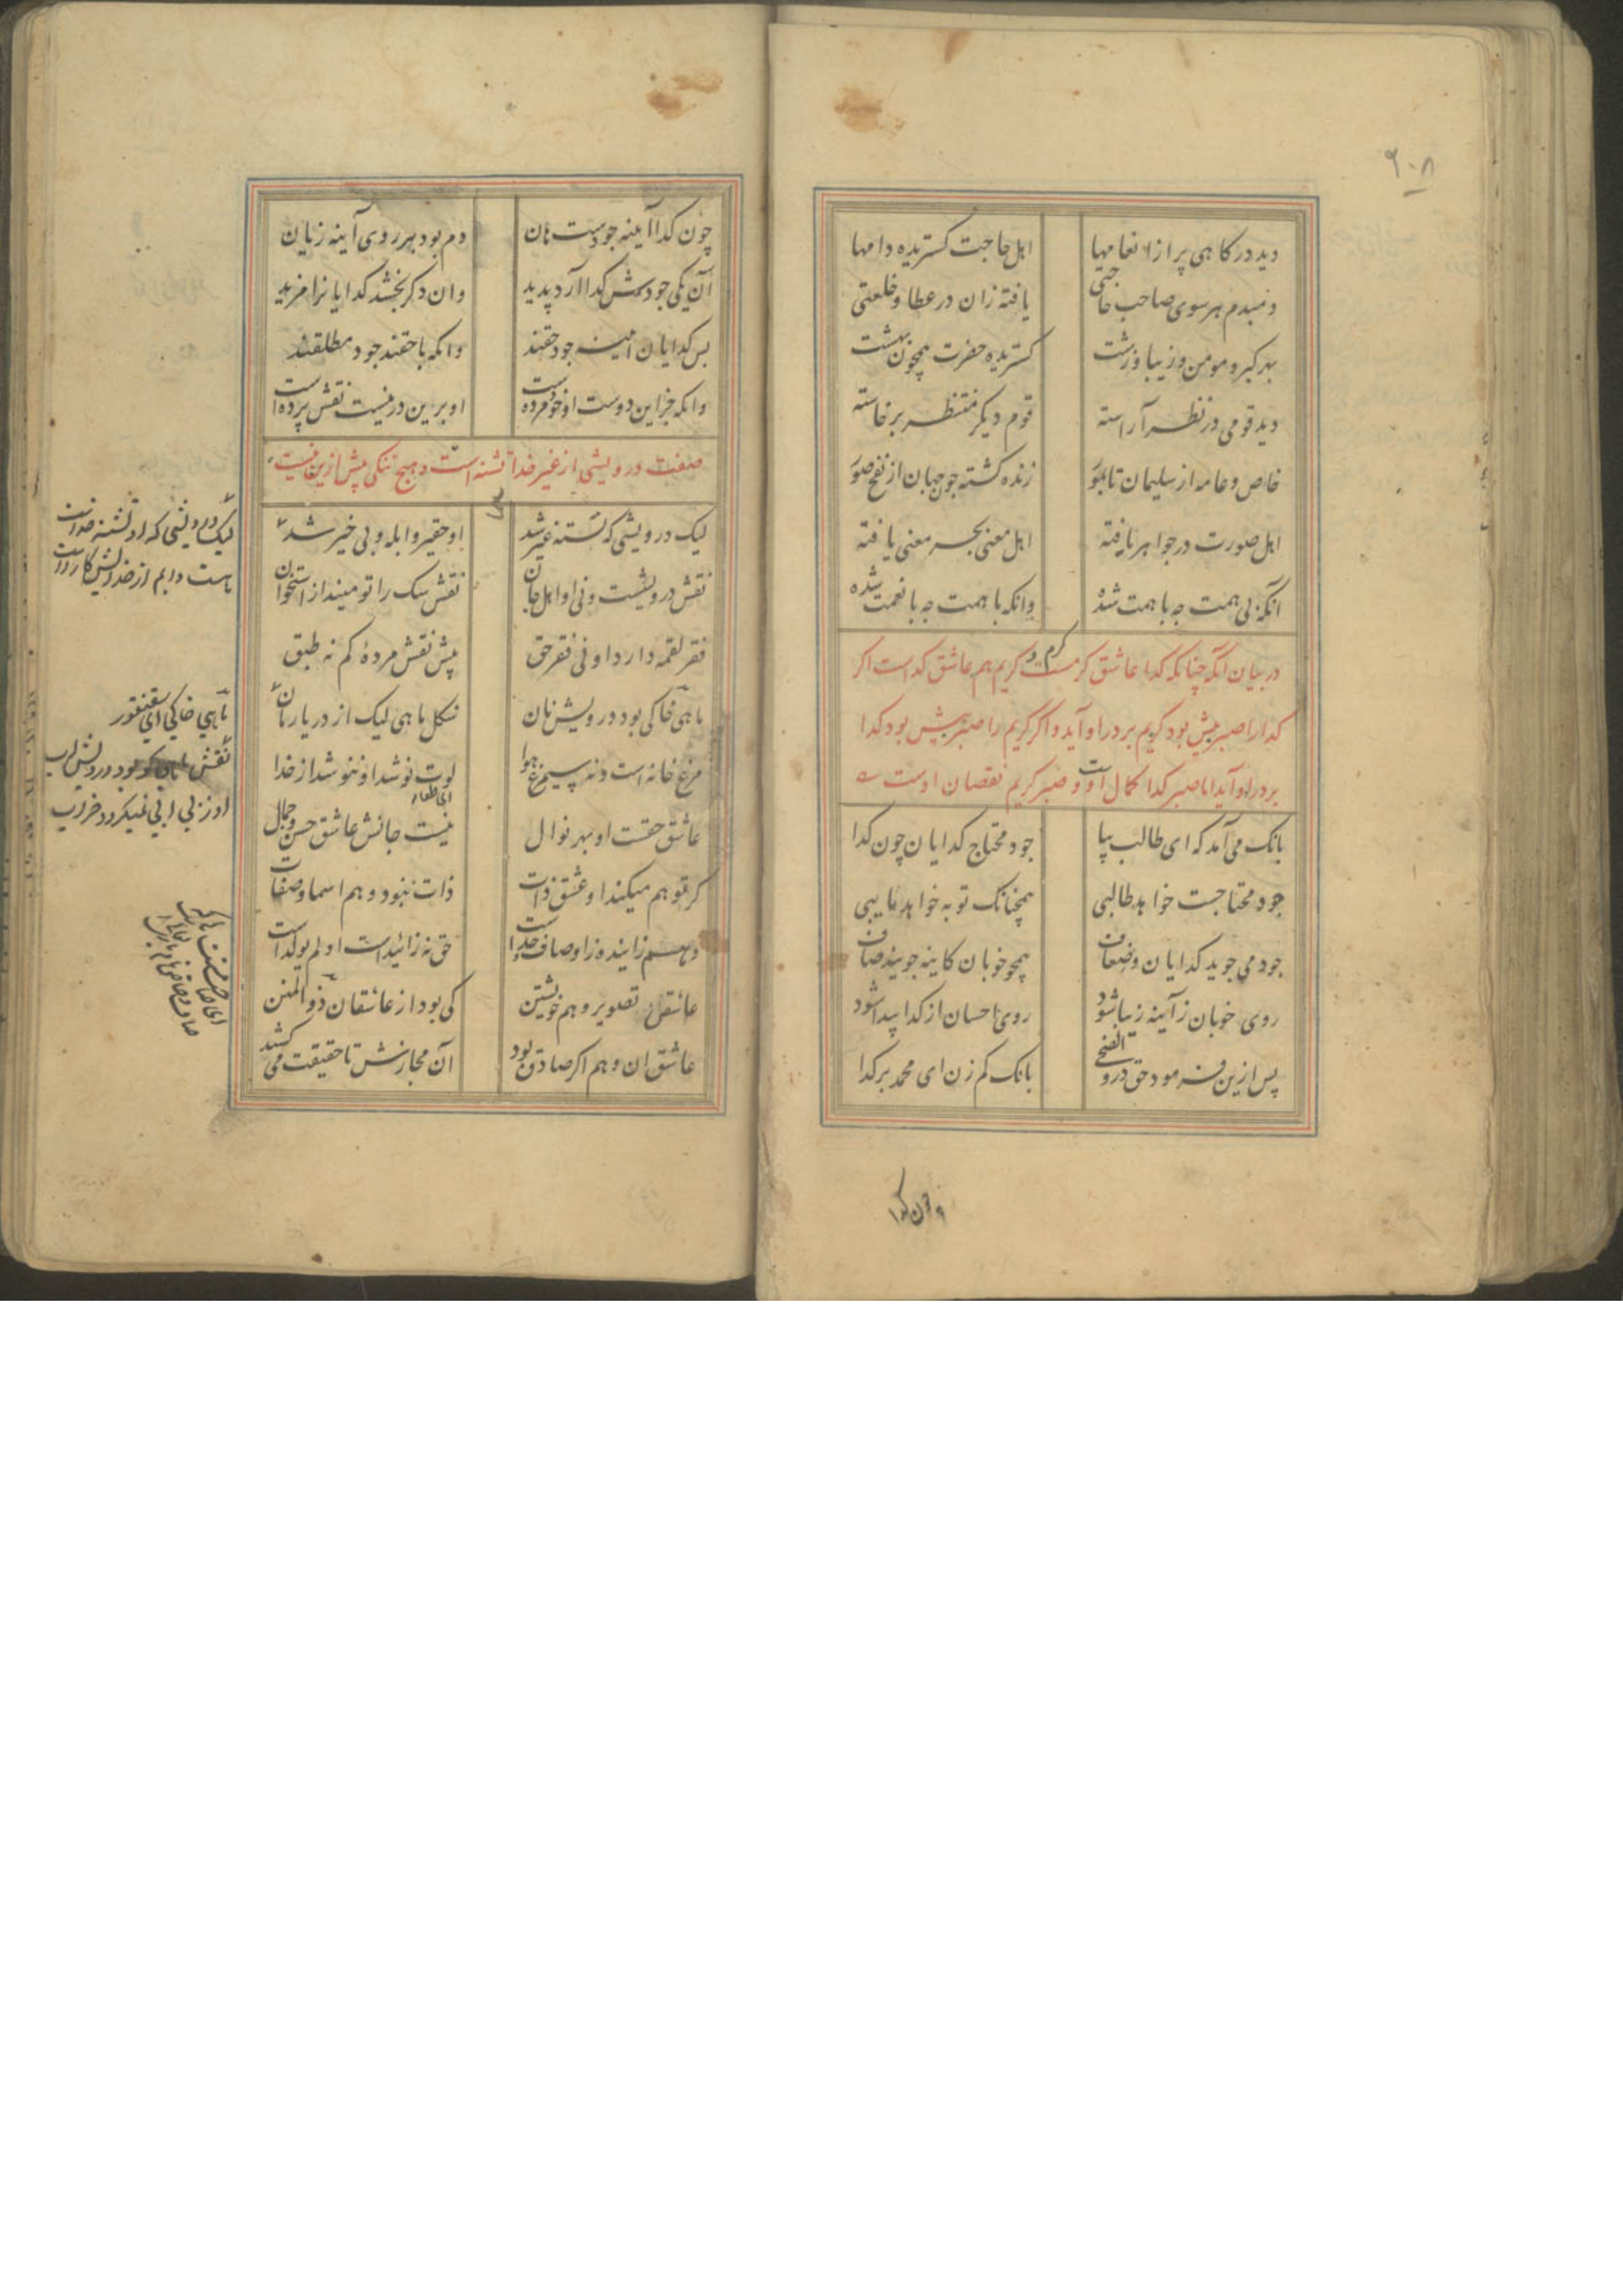 ۶۰۸
دید درکاهی پر از انعامها اهل حاجت کستریده دامها
دمبدم هر سوی صاحب حاجتی یافته زان در عطا و خلعتی
بهر کبر و مومن و زیبا و زشت کستریده حضرت همچون بهشت
دید قومی در نظر آراسته قوم دیکر منتظر برخاسته
خاص و عامه از سلیمان تا بمور زنده کشته چون جهان از نفخ صور
اهل صورت در جواهر تافته اهل معنی بحر معنی یافته
آنکه بی همت چه با همت شده وانکه با همت چه با نعمت شده
در بیان آنکه چنانکه کدا عاشق کرمست کرم و کریم هم عاشق کداست اکر
کدا را صبر بیش بود کریم بر در او آید و اکر کریم را صبر بیش بود کدا
بر در او آید اما صبر کدا کمال اوست و صبر کریم نقصان اوست
بانک می آمد که ای طالب بیا جود محتاج کدایان چون کدا
جود محتاجست خواهد طالبی همچنانک توبه خواهد تایبی
جود می جوید کدایان و ضعاف همچو خوبان کاینه جویند صاف
روی خوبان ز آینه زیبا شود روی احسان از کدا پیدا شود
پس ازین فرمود حق در والضحی بانک کم زن ای محمد بر کدا
چون کدا
چون کدا آیینه جودست هان دم بود بر روی آینه زیان
آن یکی جودش کدا آرد پدید وان دکر بخشد کدایانرا مزید
پس کدایان آینه جود حقند وانکه با حقند جود مطلقند
وانکه جز این دوست او خود مرده است او برین در نیست نقش پرده است
صفت درویشی از غیر خدا تشنه است و هیچ ننکی بیش ازین نیست
لیک درویشی که تشنه غیر شد او حقیر و ابله و بی خیر شد
نقش درویشست و نی او اهل جان نقش سک را تو مینداز استخوان
فقر لقمه دارد او نی فقر حق پیش نقش مرده کم نه طبق
ماهی خاکی بود درویش نان شکل ماهی لیک از دریا رمان
مرغ خانه است و نه سیمرغ هوا لوت نوشد او ننوشد از خدا
ای طعام
عاشق حقست او بهر نوال نیست جانش عاشق حسن و جمال
کر توهم میکند او عشق ذات ذات نبود وهم اسما و صفات
وهم زاینده ز اوصاف خداست حق نه زائیده است او لم یولد است
عاشق تصویر و هم خویشتن کی بود از عاشقان ذوالمنن
عاشق ان وهم اکر صادق بود آن مجازش تا حقیقت می کشد
لیک درویشی که او تشنه خداست
هست دایم از خدایش کار راست
ماهی خاکی ای سقنقور
نقش ماهی کو بود درویش آب
او ز بی آبی نمیکردد خراب